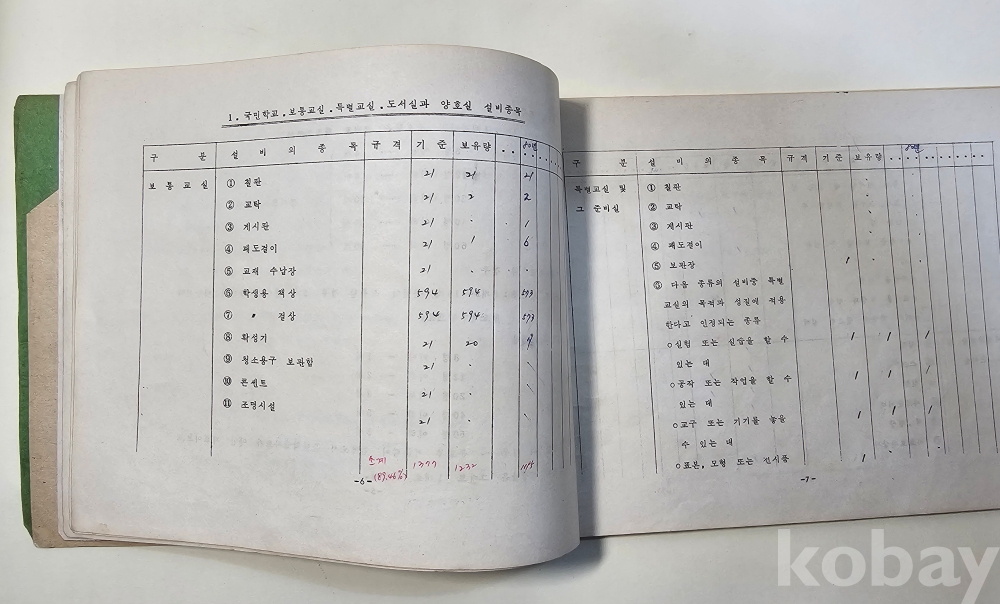 1. 국민학교. 보통교실. 특별교실. 도서실과 양호실 설비종목
구 분 설 비 의 종 목 규 격 기 준 보유량 80년
보 통 교 실 ① 칠판 21 21 21
② 교탁 21 2 2
③ 게시판 21 1
④ 괘도걸이 21 1 6
⑤ 교재 수납장 21
⑥ 학생용 책상 594 594 573
⑦ 〃 걸상 594 594 573
⑧ 확성기 21 20
⑨ 청소용구 보관함 21
⑩ 콘센트 21
⑪ 조명시설 21
소계 (89.46%) 1377 1232
-6-
구 분 설 비 의 종 목 규 격 기 준 보유량
특별교실 및 ① 칠판
그 준비실 ② 교탁
③ 게시판
④ 괘도걸이
⑤ 보관장 1
⑥ 다음 종류의 설비중 특별
교실의 목적과 성질에 적응
한다고 인정되는 종류
○실험 또는 실습을 할 수 1 1 1
있는 대
○공작 또는 작업을 할 수 1 1 1
있는 대
○교구 또는 기기를 놓을 1 1 1
수 있는 대
○표본, 모형 또는 전시품 1
-7-
kobay